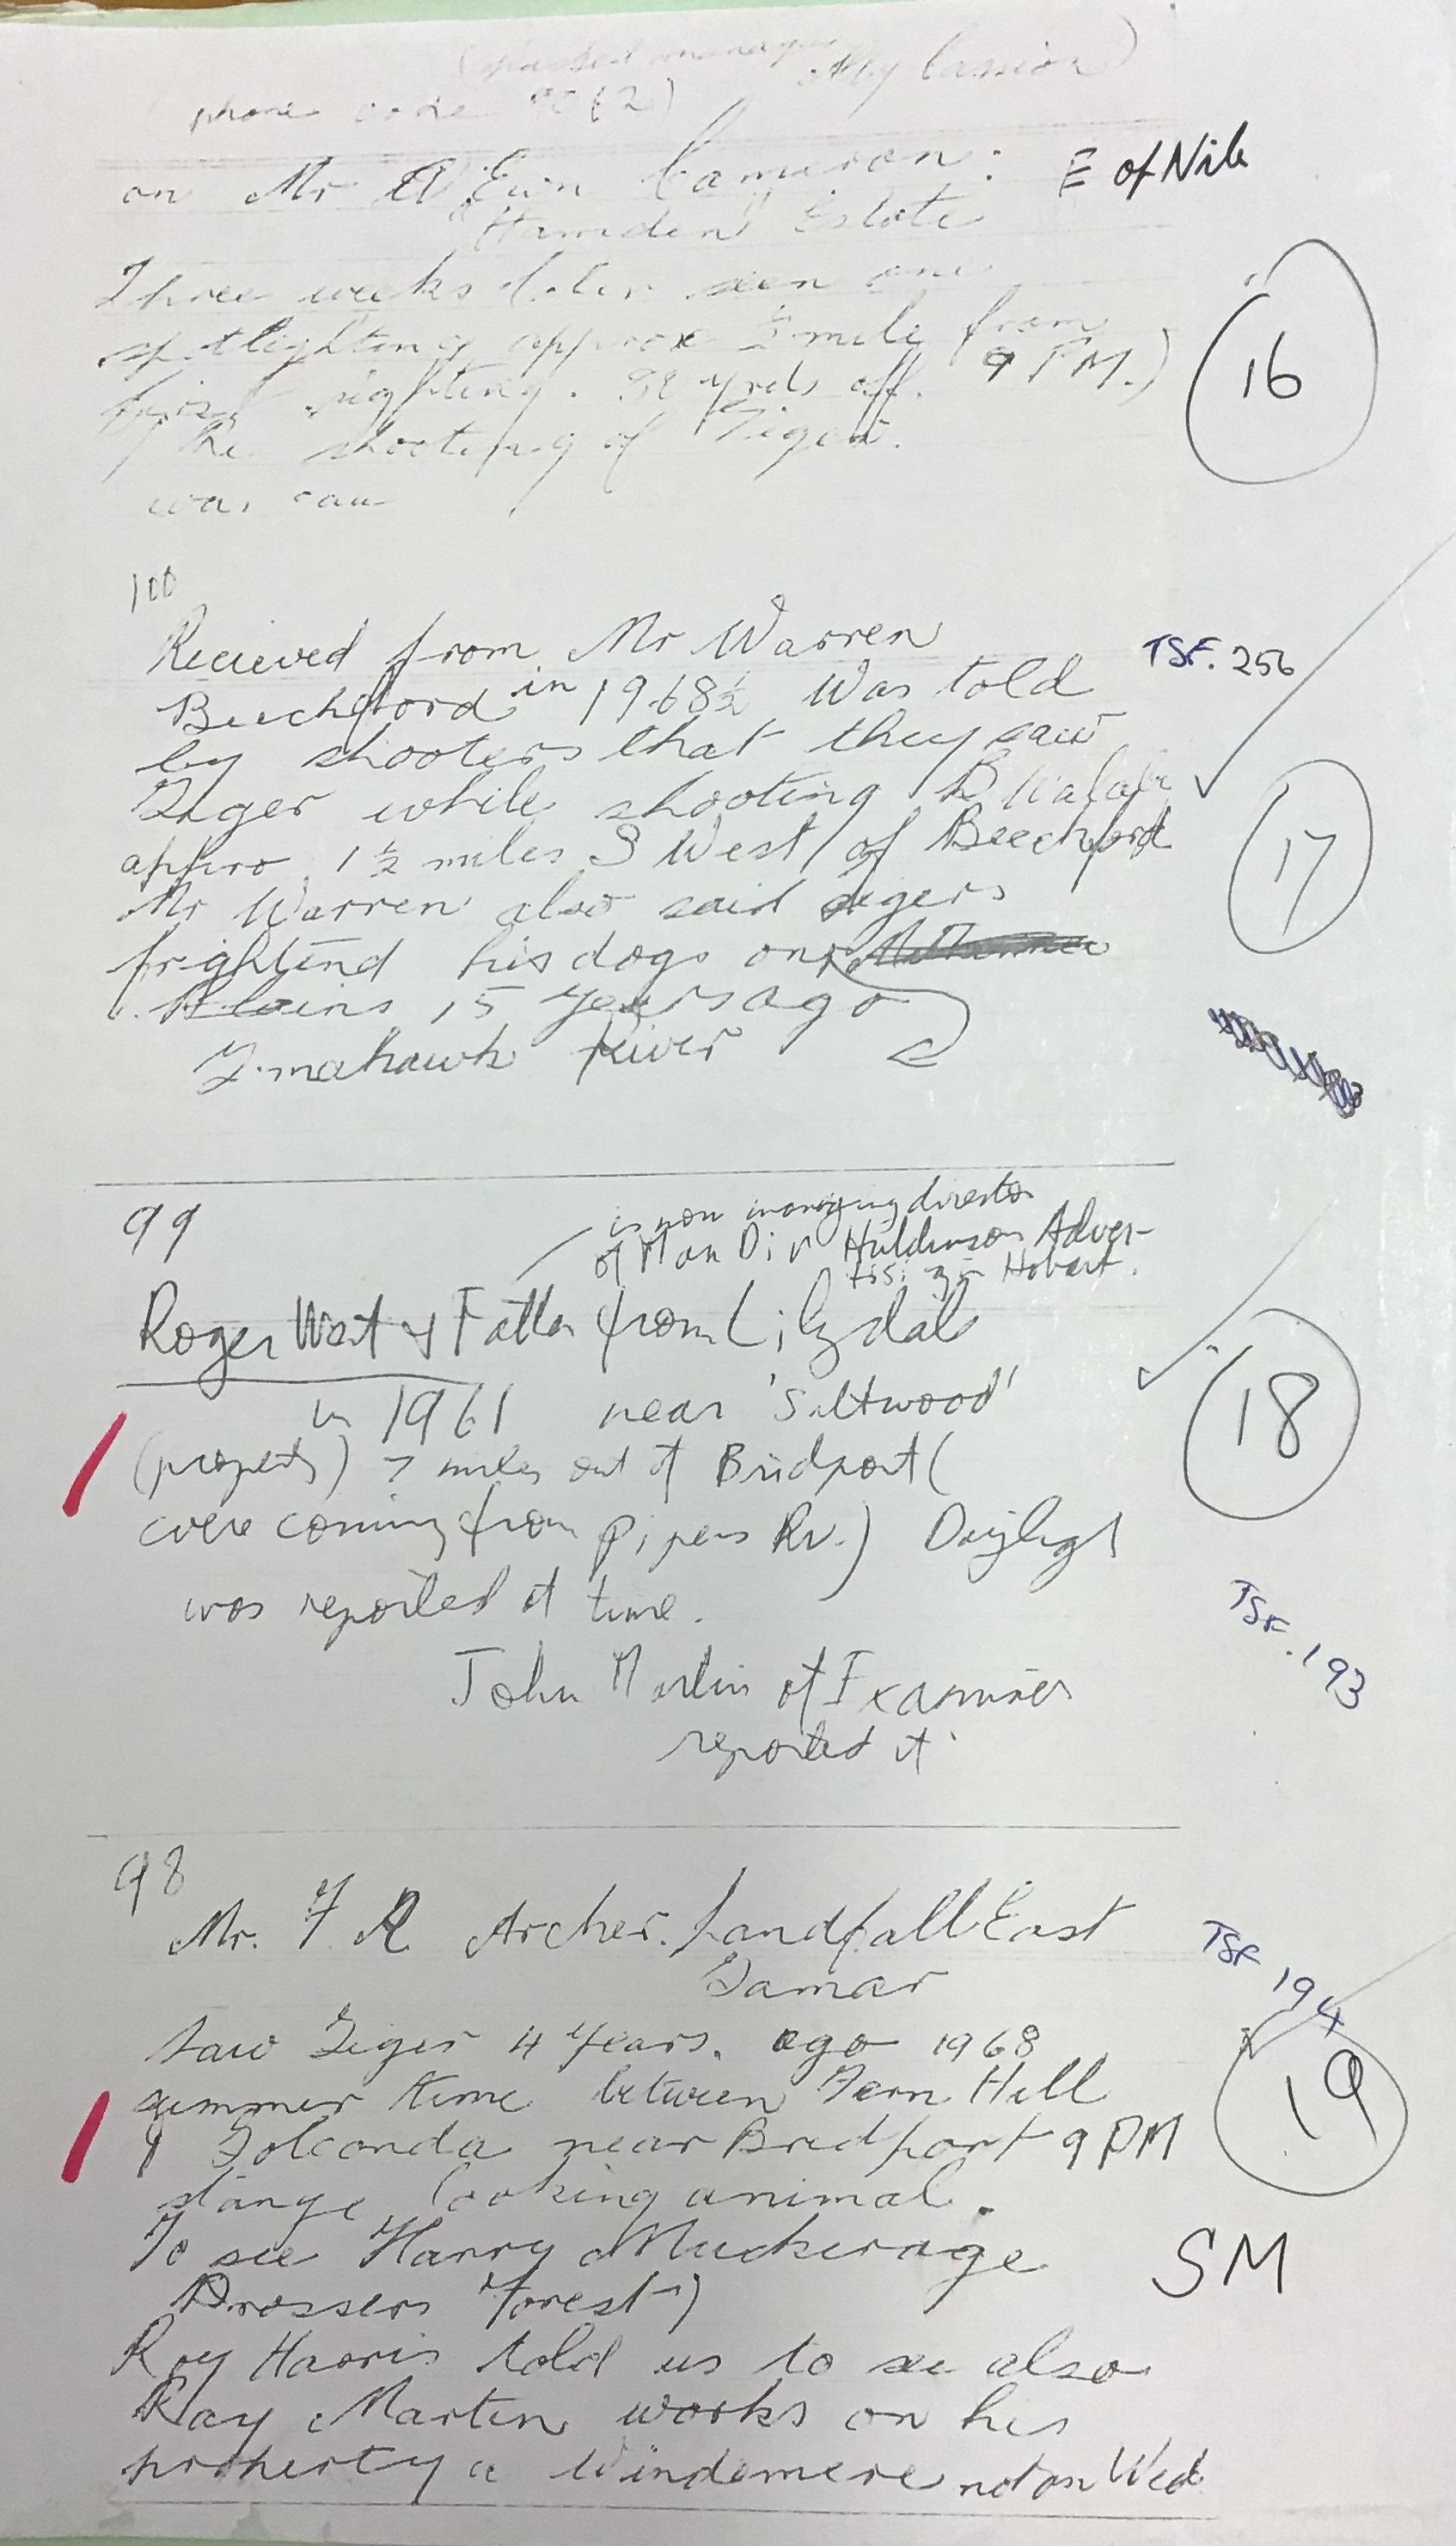 phone code
on Mr Ewn Cameron: E of Nile
"Hamden" Estate
Three weeks later seen one
spotlighting approx ½ mile from
first sighting. yrds off. 9 PM.)
The shooting of Tiger.
was
16
100
Recieved from Mr Warren
TSF. 256
Beechford in 1968½ Was told
by shooters that they saw
Tiger while shooting B
appro 1½ miles S West of Beechford
17
Mr Warren also said tigers
frightend his dogs on
Plains 15 years ago
Tomahawk River
99
is now managing director
of Man Dir Hutchinson Adver-
tising Hobart.
Roger West & Father from Lilydale
18
in 1961 near 'Saltwood'
(property) 7 miles out of Bridport (
were coming from Pipers Rv.) Daylight
was reported at time.
TSF. 193
John Martin of Examiner
reported it
98
Mr. F R Archer. Landfall East
Tamar
TSF 194
Saw Tiger 4 years. ago 1968
summer time between Fern Hill
19
& Golconda near Bridport 9 PM
stange looking animal.
To see Harry Muckerage
SM
Prossers Forest)
Roy Harris told us to see also
Ray Martin works on his
property a Windemere not on Wed